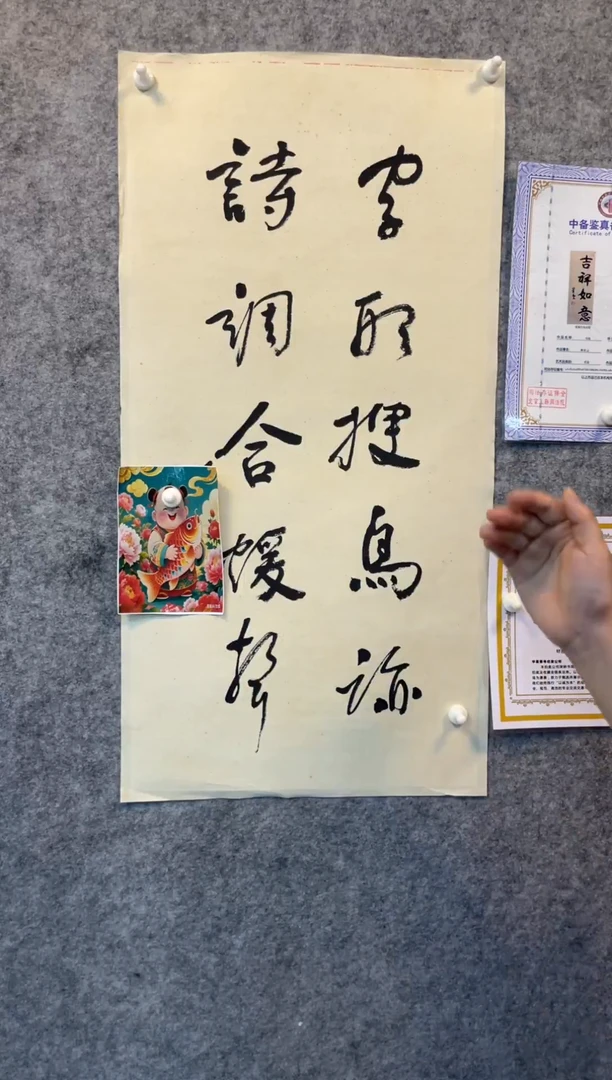 字形搜鳥跡
詩調合蝯聲
中备鉴真
Certificate of
吉祥如意